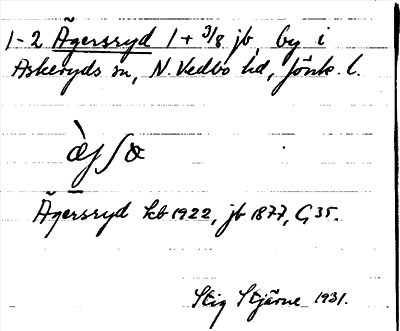 1-2 Ägersryd 1 + 3/8 jb, by i
Askeryds sn, N. Vedbo hd, Jönk. l.
Ägersryd kb 1922, jb 1877, G 35.
Stig Stjärne 1931.